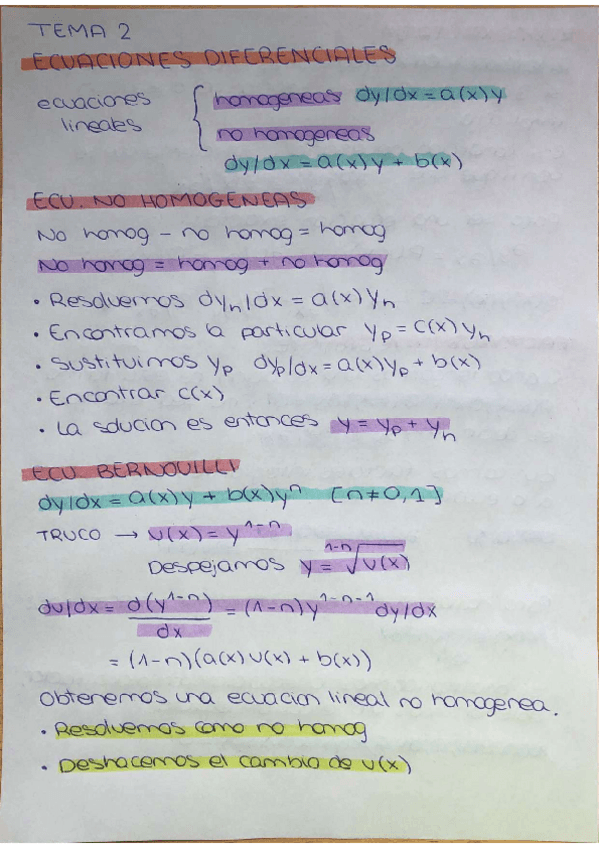 TEMA 2
ECUACIONES DIFERENCIALES
ecuaciones lineales { homogeneas dy/dx = a(x)y
no homogeneas
dy/dx = a(x)y + b(x)
ECU. NO HOMOGENEAS
No homog - no homog = homog
No homog = homog + no homog
· Resolvemos dyₕ/dx = a(x)yₕ
· Encontramos la particular yₚ = c(x)yₕ
· Sustituimos yₚ dyₚ/dx = a(x)yₚ + b(x)
· Encontrar c(x)
· La solucion es entonces y = yₚ + yₕ
ECU BERNOUILLI
dy/dx = a(x)y + b(x)yⁿ [n≠0,1]
TRUCO → u(x) = y¹⁻ⁿ
Despejamos y = ¹⁻ⁿ√u(x)
du/dx = d(y¹⁻ⁿ)/dx = (1-n)y¹⁻ⁿ⁻¹ dy/dx
= (1-n)(a(x)u(x) + b(x))
Obtenemos una ecuacion lineal no homogenea.
· Resolvemos como no homog
· Deshacemos el cambio de u(x)